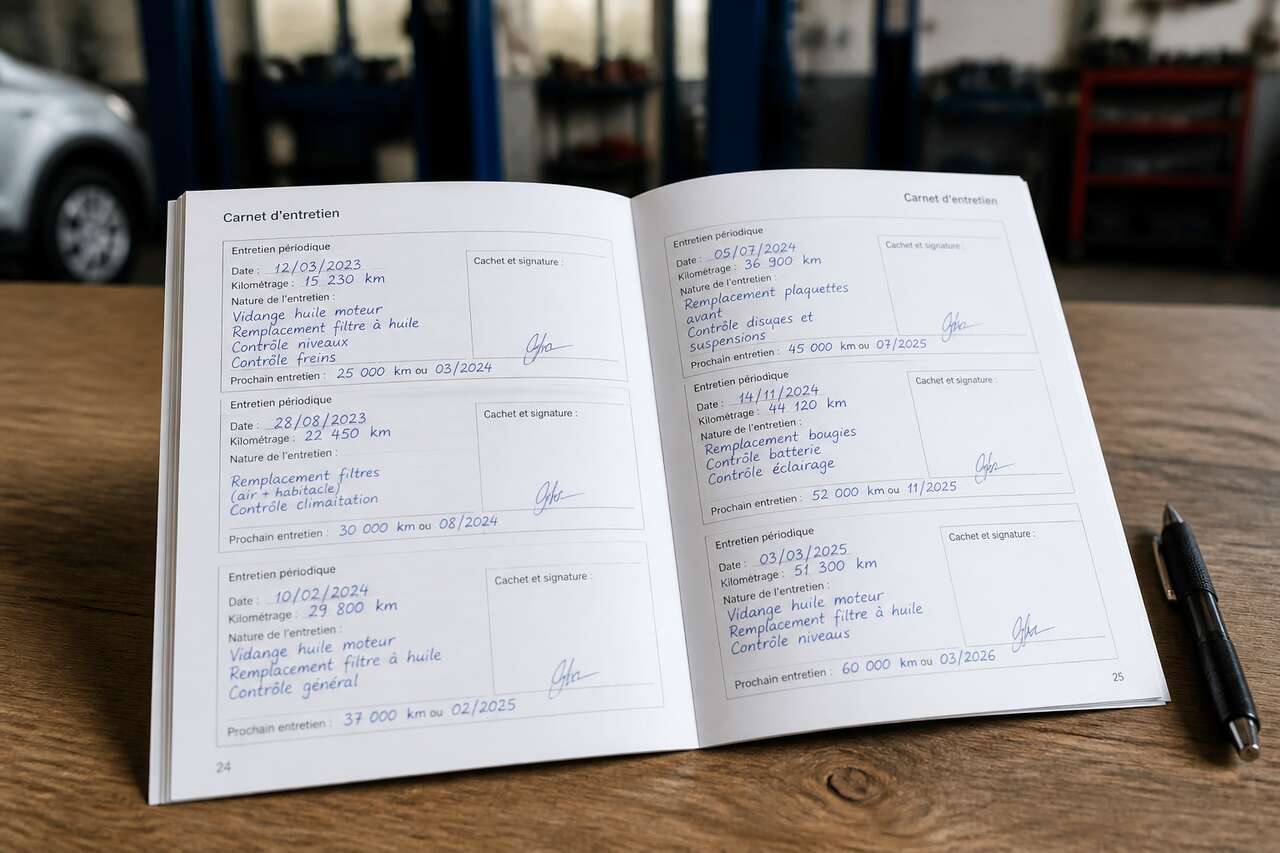 Carnet d'entretien
Entretien périodique
Date : 12/03/2023
Kilométrage : 15 230 km
Cachet et signature :
Nature de l'entretien :
Vidange huile moteur
Remplacement filtre à huile
Contrôle niveaux
Contrôle freins
Prochain entretien : 25 000 km ou 03/2024
Entretien périodique
Date : 28/08/2023
Kilométrage : 22 450 km
Cachet et signature :
Nature de l'entretien :
Remplacement filtres
(air + habitacle)
Contrôle climaitation
Prochain entretien : 30 000 km ou 08/2024
Entretien périodique
Date : 10/02/2024
Kilométrage : 29 800 km
Cachet et signature :
Nature de l'entretien :
Vidange huile moteur
Remplacement filtre à huile
Contrôle général
Prochain entretien : 37 000 km ou 02/2025
24
Carnet d'entretien
Entretien périodique
Date : 05/07/2024
Kilométrage : 36 900 km
Cachet et signature :
Nature de l'entretien :
Remplacement plaquettes
avant
Contrôle disques et
suspensions
Prochain entretien : 45 000 km ou 07/2025
Entretien périodique
Date : 14/11/2024
Kilométrage : 44 120 km
Cachet et signature :
Nature de l'entretien :
Remplacement bougies
Contrôle batterie
Contrôle éclairage
Prochain entretien : 52 000 km ou 11/2025
Entretien périodique
Date : 03/03/2025
Kilométrage : 51 300 km
Cachet et signature :
Nature de l'entretien :
Vidange huile moteur
Remplacement filtre à huile
Contrôle niveaus
Prochain entretien : 60 000 km ou 03/2026
25